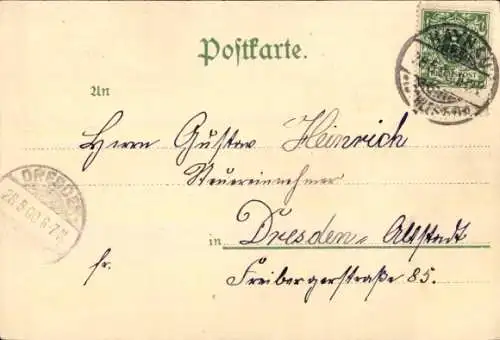 Postkarte.
An
Herrn Gustav Heinrich
Steuereinnehmer
in Dresden-Altstadt
Freibergerstraße 85.
fr.
DRESDEN
28.5.00.6-7N